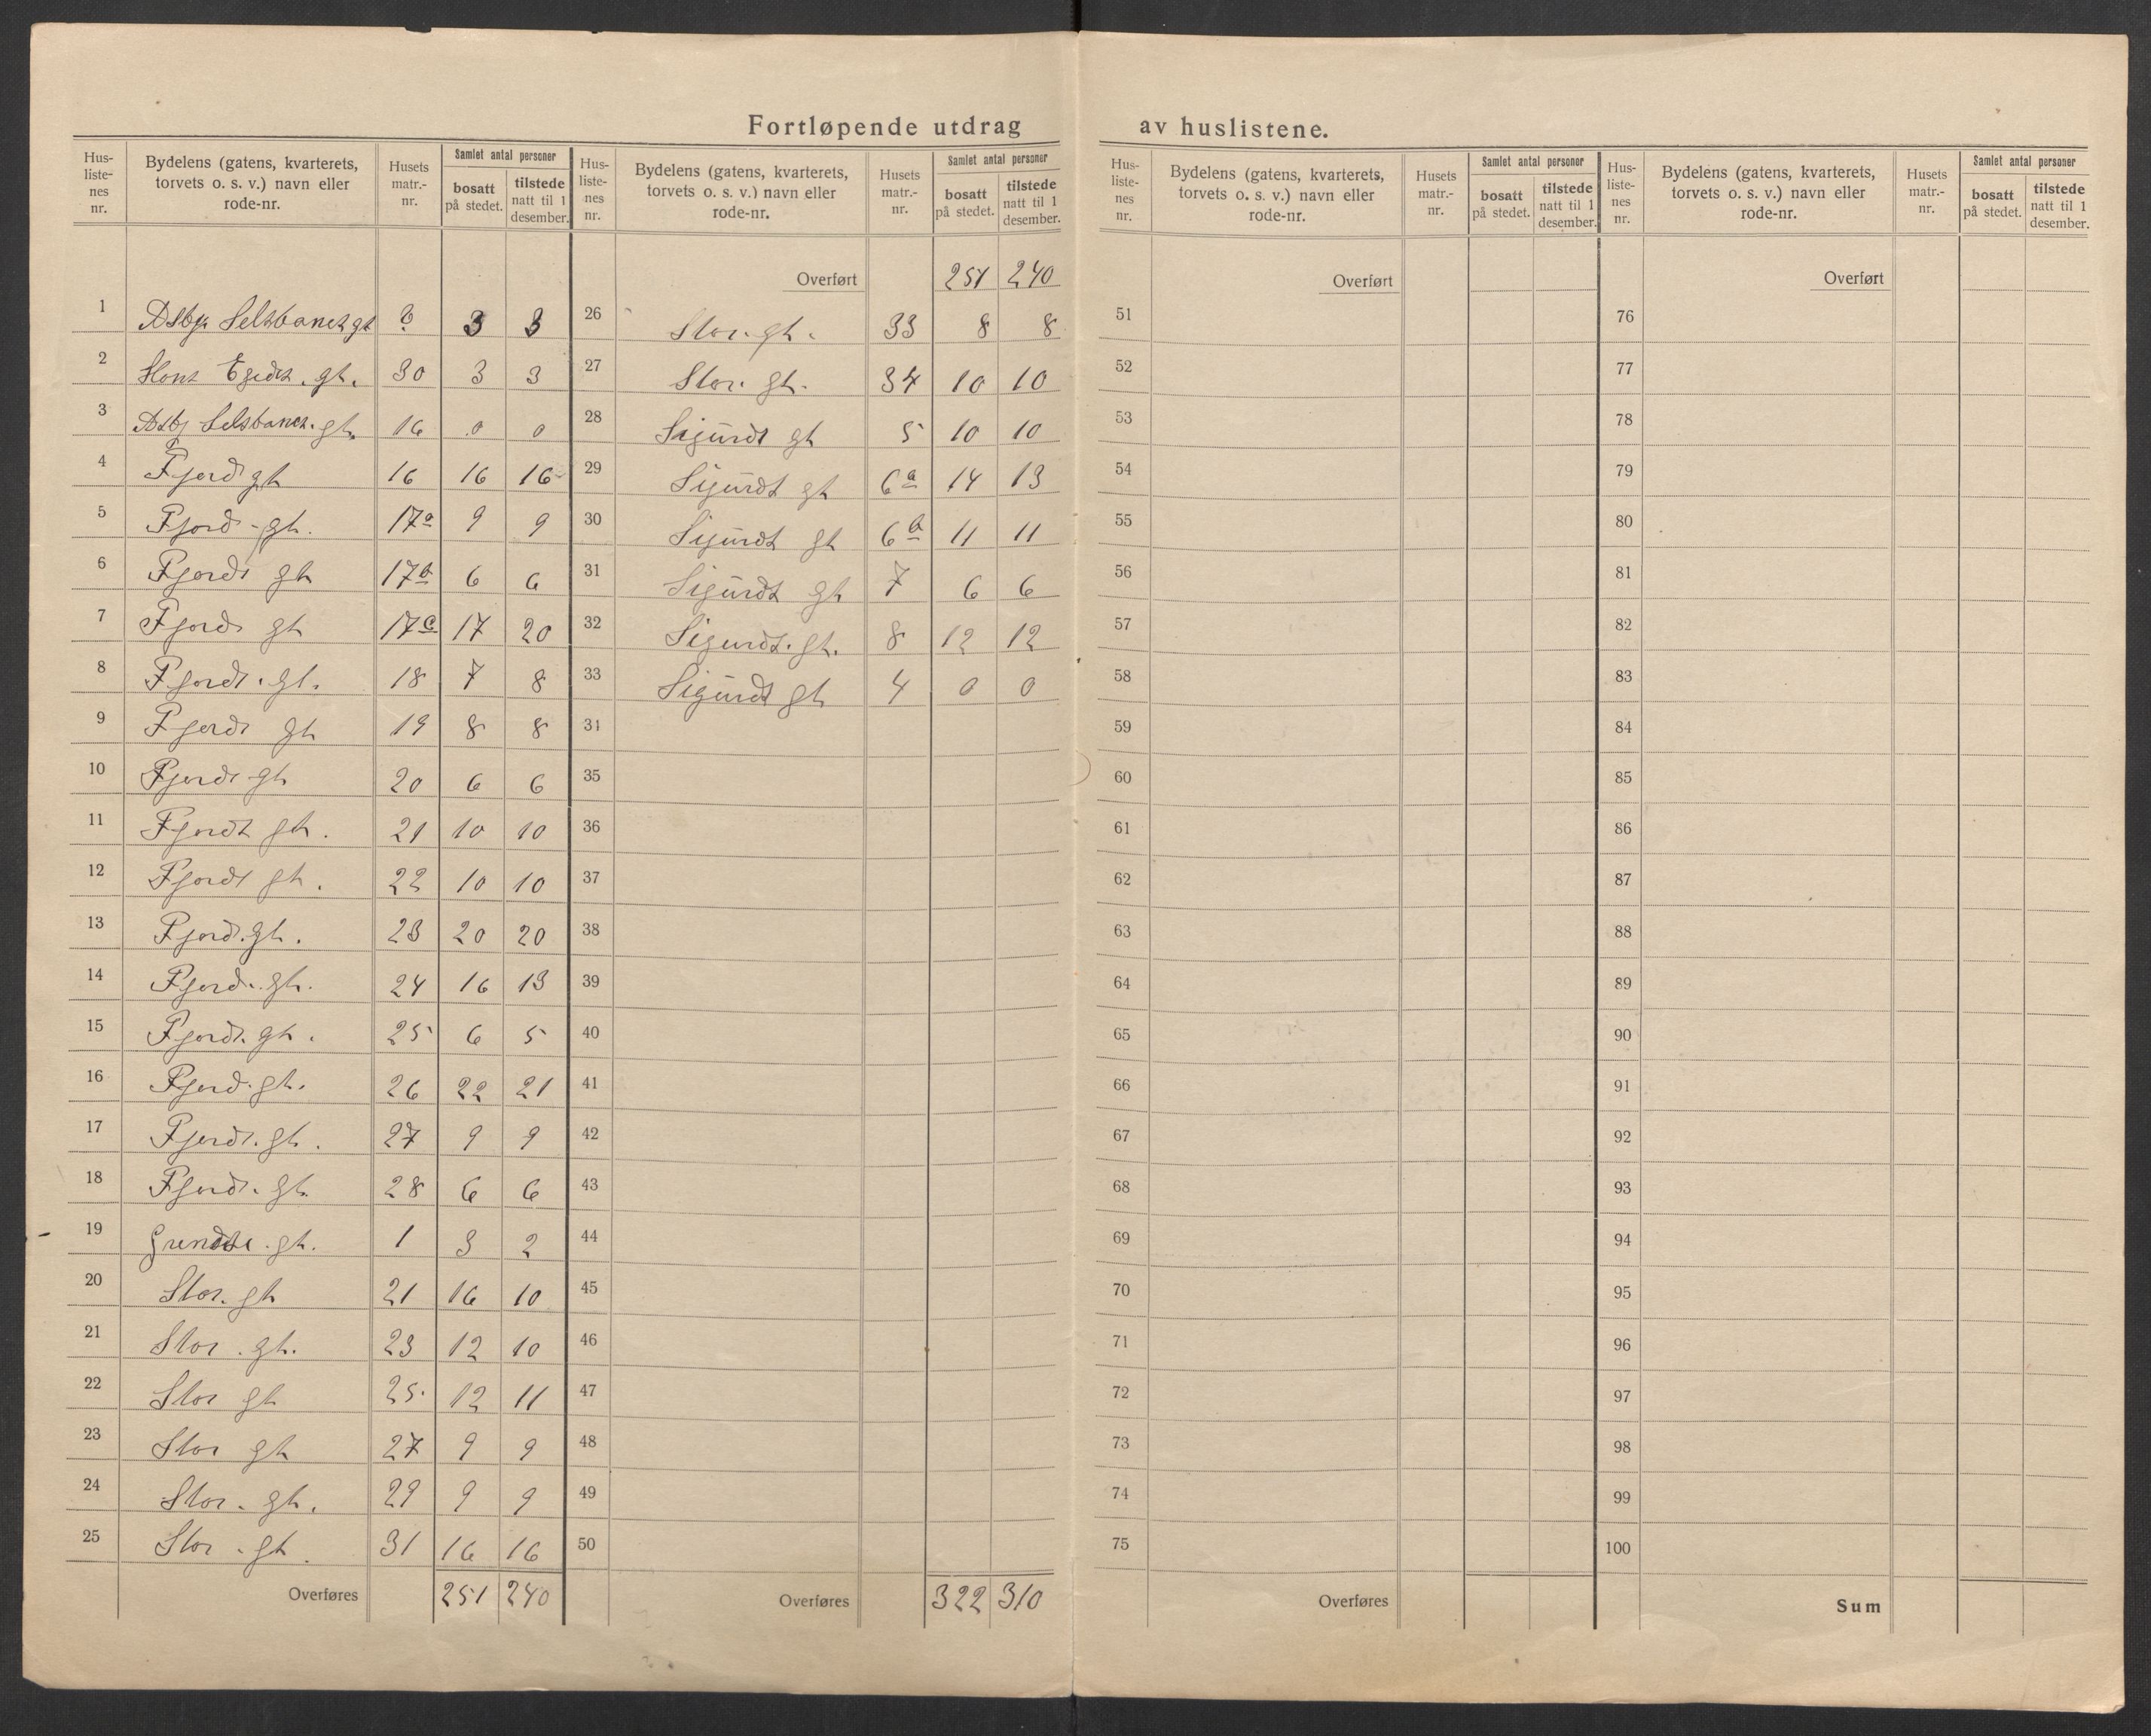 Fortløpende utdrag av huslistene.
Hus-listenes nr. | Bydelens (gatens, kvarterets, torvets o. s. v.) navn eller rode-nr. | Husets matr.-nr. | Samlet antal personer bosatt på stedet. | tilstede natt til 1 desember.
1 3 3
2 Hans Egedes gt. 30 3 3
3 Asbj Selsbanes. gt. 16 0 0
4 Fjord gt 16 16 16
5 Fjord-gt. 17a 9 9
6 Fjord gt 17b 6 6
7 Fjord gt 17c 17 20
8 Fjord. gt. 18 7 8
9 Fjord gt 19 8 8
10 Fjord gt 20 6 6
11 Fjord gt. 21 10 10
12 Fjord gt. 22 10 10
13 Fjord. gt. 23 20 20
14 Fjord. gt. 24 16 13
15 Fjord. gt. 25 6 5
16 Fjord. gt. 26 22 21
17 Fjord. gt. 27 9 9
18 Fjord. gt. 28 6 6
19 gt. 1 3 2
20 Stor. gt 21 16 10
21 Stor. gt. 23 12 10
22 Stor gt 25. 12 11
23 Stor gt 27 9 9
24 Stor. gt. 29 9 9
25 Stor. gt. 31 16 16
Overføres 251 240
Hus-listenes nr. | Bydelens (gatens, kvarterets, torvets o. s. v.) navn eller rode-nr. | Husets matr.-nr. | Samlet antal personer bosatt på stedet. | tilstede natt til 1 desember.
Overført 251 240
26 Stor. gt. 33 8 8
27 Stor. gt. 34 10 10
28 Sigurds gt 5 10 10
29 Sigurds gt 6a 14 13
30 Sigurds gt 6b 11 11
31 Sigurds gt 7 6 6
32 Sigurds. gt. 8 12 12
33 Sigurds gt 4 0 0
34
35
36
37
38
39
40
41
42
43
44
45
46
47
48
49
50
Overføres 322 310
Hus-listenes nr. | Bydelens (gatens, kvarterets, torvets o. s. v.) navn eller rode-nr. | Husets matr.-nr. | Samlet antal personer bosatt på stedet. | tilstede natt til 1 desember.
Overført
51
52
53
54
55
56
57
58
59
60
61
62
63
64
65
66
67
68
69
70
71
72
73
74
75
Overføres
Hus-listenes nr. | Bydelens (gatens, kvarterets, torvets o. s. v.) navn eller rode-nr. | Husets matr.-nr. | Samlet antal personer bosatt på stedet. | tilstede natt til 1 desember.
Overført
76
77
78
79
80
81
82
83
84
85
86
87
88
89
90
91
92
93
94
95
96
97
98
99
100
Sum